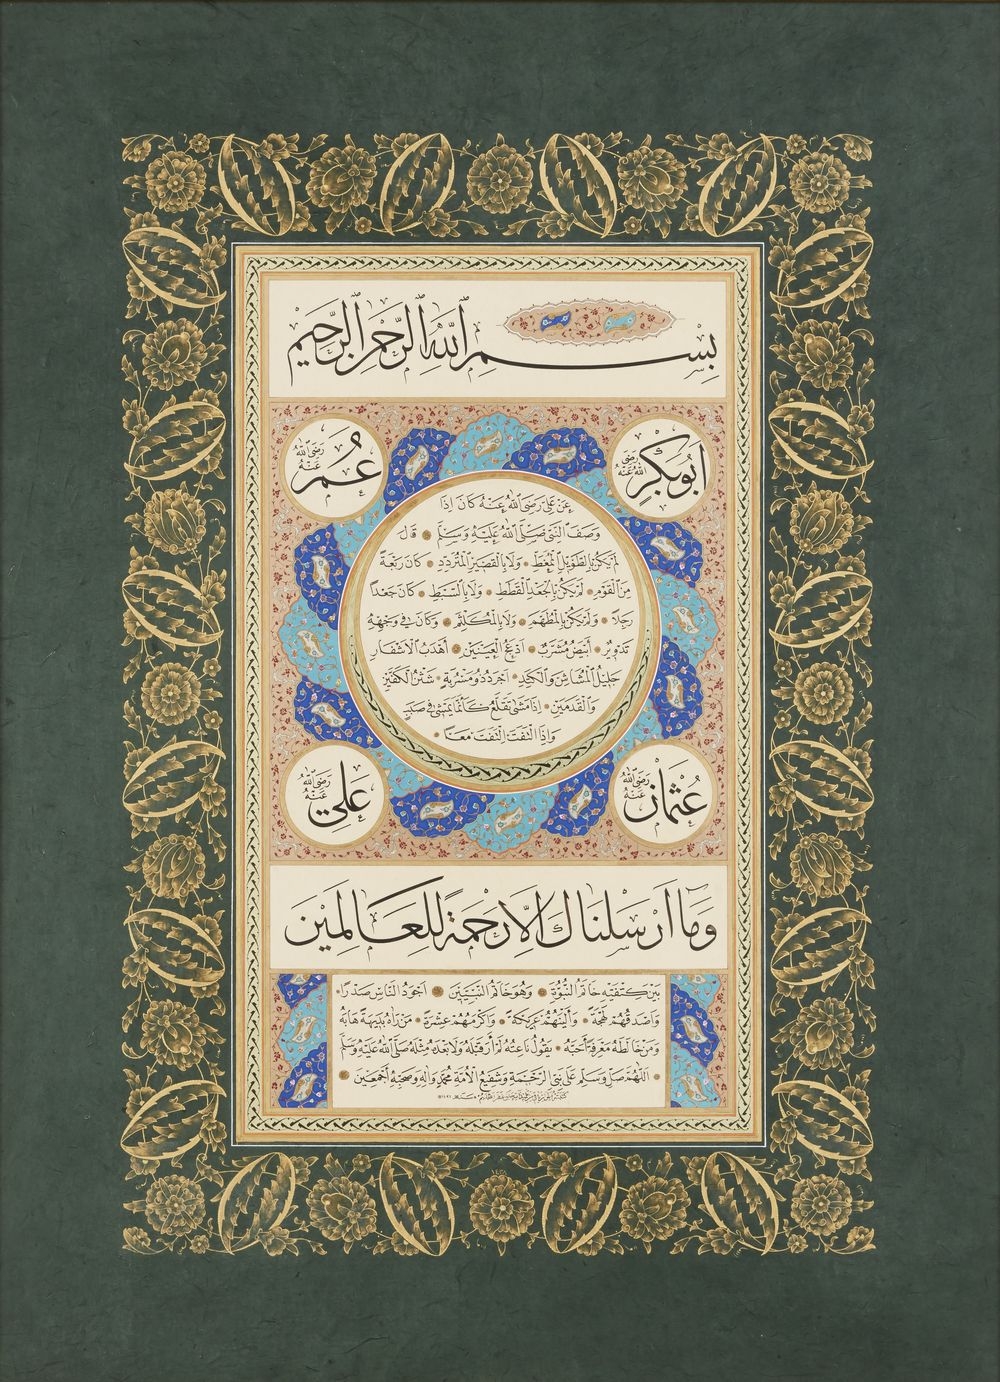 بِسْمِ اللهِ الرَّحْمٰنِ الرَّحِيْمِ
ابُوبَكْرٍ رَضِيَ اللهُ عَنْهُ
عُمَرُ رَضِيَ اللهُ عَنْهُ
عَنْ عَلِيٍّ رَضِيَ اللهُ عَنْهُ كَانَ اِذَا
وَصَفَ النَّبِيَّ صَلَّى اللهُ عَلَيْهِ وَسَلَّمَ قَالَ
لَمْ يَكُنْ بِالطَّوِيلِ الْمُمَّغِطِ وَلَا بِالْقَصِيرِ الْمُتَرَدِّدِ كَانَ رَبْعَةً
مِنَ الْقَوْمِ لَمْ يَكُنْ بِالْجَعْدِ الْقَطَطِ وَلَا بِالسَّبِطِ كَانَ جَعْدًا
رَجِلًا وَلَمْ يَكُنْ بِالْمُطَهَّمِ وَلَا بِالْمُكَلْثَمِ وَكَانَ فِي وَجْهِهِ
تَدْوِيرٌ اَبْيَضُ مُشْرَبٌ اَدْعَجُ الْعَيْنَيْنِ اَهْدَبُ الْاَشْفَارِ
جَلِيلُ الْمُشَاشِ وَالْكَتَدِ اَجْرَدُ ذُو مَسْرُبَةٍ شَثْنُ الْكَفَّيْنِ
وَالْقَدَمَيْنِ اِذَا مَشَى تَقَلَّعَ كَاَنَّمَا يَمْشِي فِي صَبَبٍ
وَاِذَا الْتَفَتَ الْتَفَتَ مَعًا
عُثْمَانُ رَضِيَ اللهُ عَنْهُ
عَلِيٌّ رَضِيَ اللهُ عَنْهُ
وَمَا اَرْسَلْنَاكَ اِلَّا رَحْمَةً لِلْعَالَمِيْنَ
بَيْنَ كَتِفَيْهِ خَاتَمُ النُّبُوَّةِ وَهُوَ خَاتَمُ النَّبِيِّينَ اَجْوَدُ النَّاسِ صَدْرًا
وَاَصْدَقُهُمْ لَهْجَةً وَاَلْيَنُهُمْ عَرِيكَةً وَاَكْرَمُهُمْ عِشْرَةً مَنْ رَآهُ بَدِيهَةً هَابَهُ
وَمَنْ خَالَطَهُ مَعْرِفَةً اَحَبَّهُ يَقُولُ نَاعِتُهُ لَمْ اَرَ قَبْلَهُ وَلَا بَعْدَهُ مِثْلَهُ صَلَّى اللهُ عَلَيْهِ وَسَلَّمَ
اَللّٰهُمَّ صَلِّ وَسَلِّمْ عَلَى نَبِيِّ الرَّحْمَةِ وَشَفِيعِ الْاُمَّةِ مُحَمَّدٍ وَآلِهِ وَصَحْبِهِ اَجْمَعِينَ